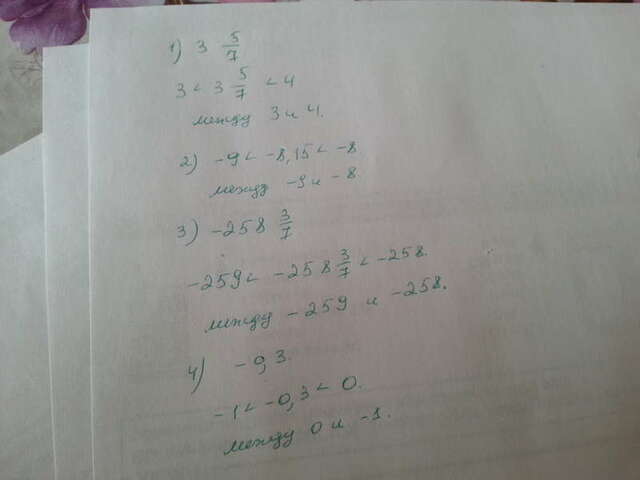 1) 3 5/7
3 < 3 5/7 < 4
между 3 и 4.
2) -9 < -8,15 < -8
между -9 и -8.
3) -258 3/7
-259 < -258 3/7 < -258.
между -259 и -258.
4) -0,3.
-1 < -0,3 < 0.
между 0 и -1.